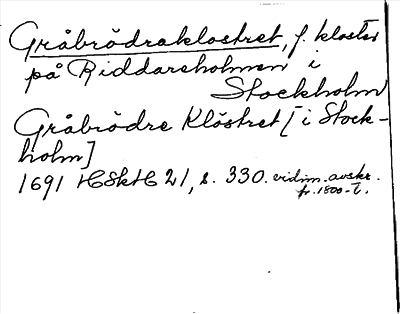 Gråbrödraklostret, f. kloster
på Riddareholmen i
Stockholm
Gråbrödre Klöstret [i Stock-
holm]
1691 HSkH 21, s. 330. vidim. avskr.
fr. 1800-t.